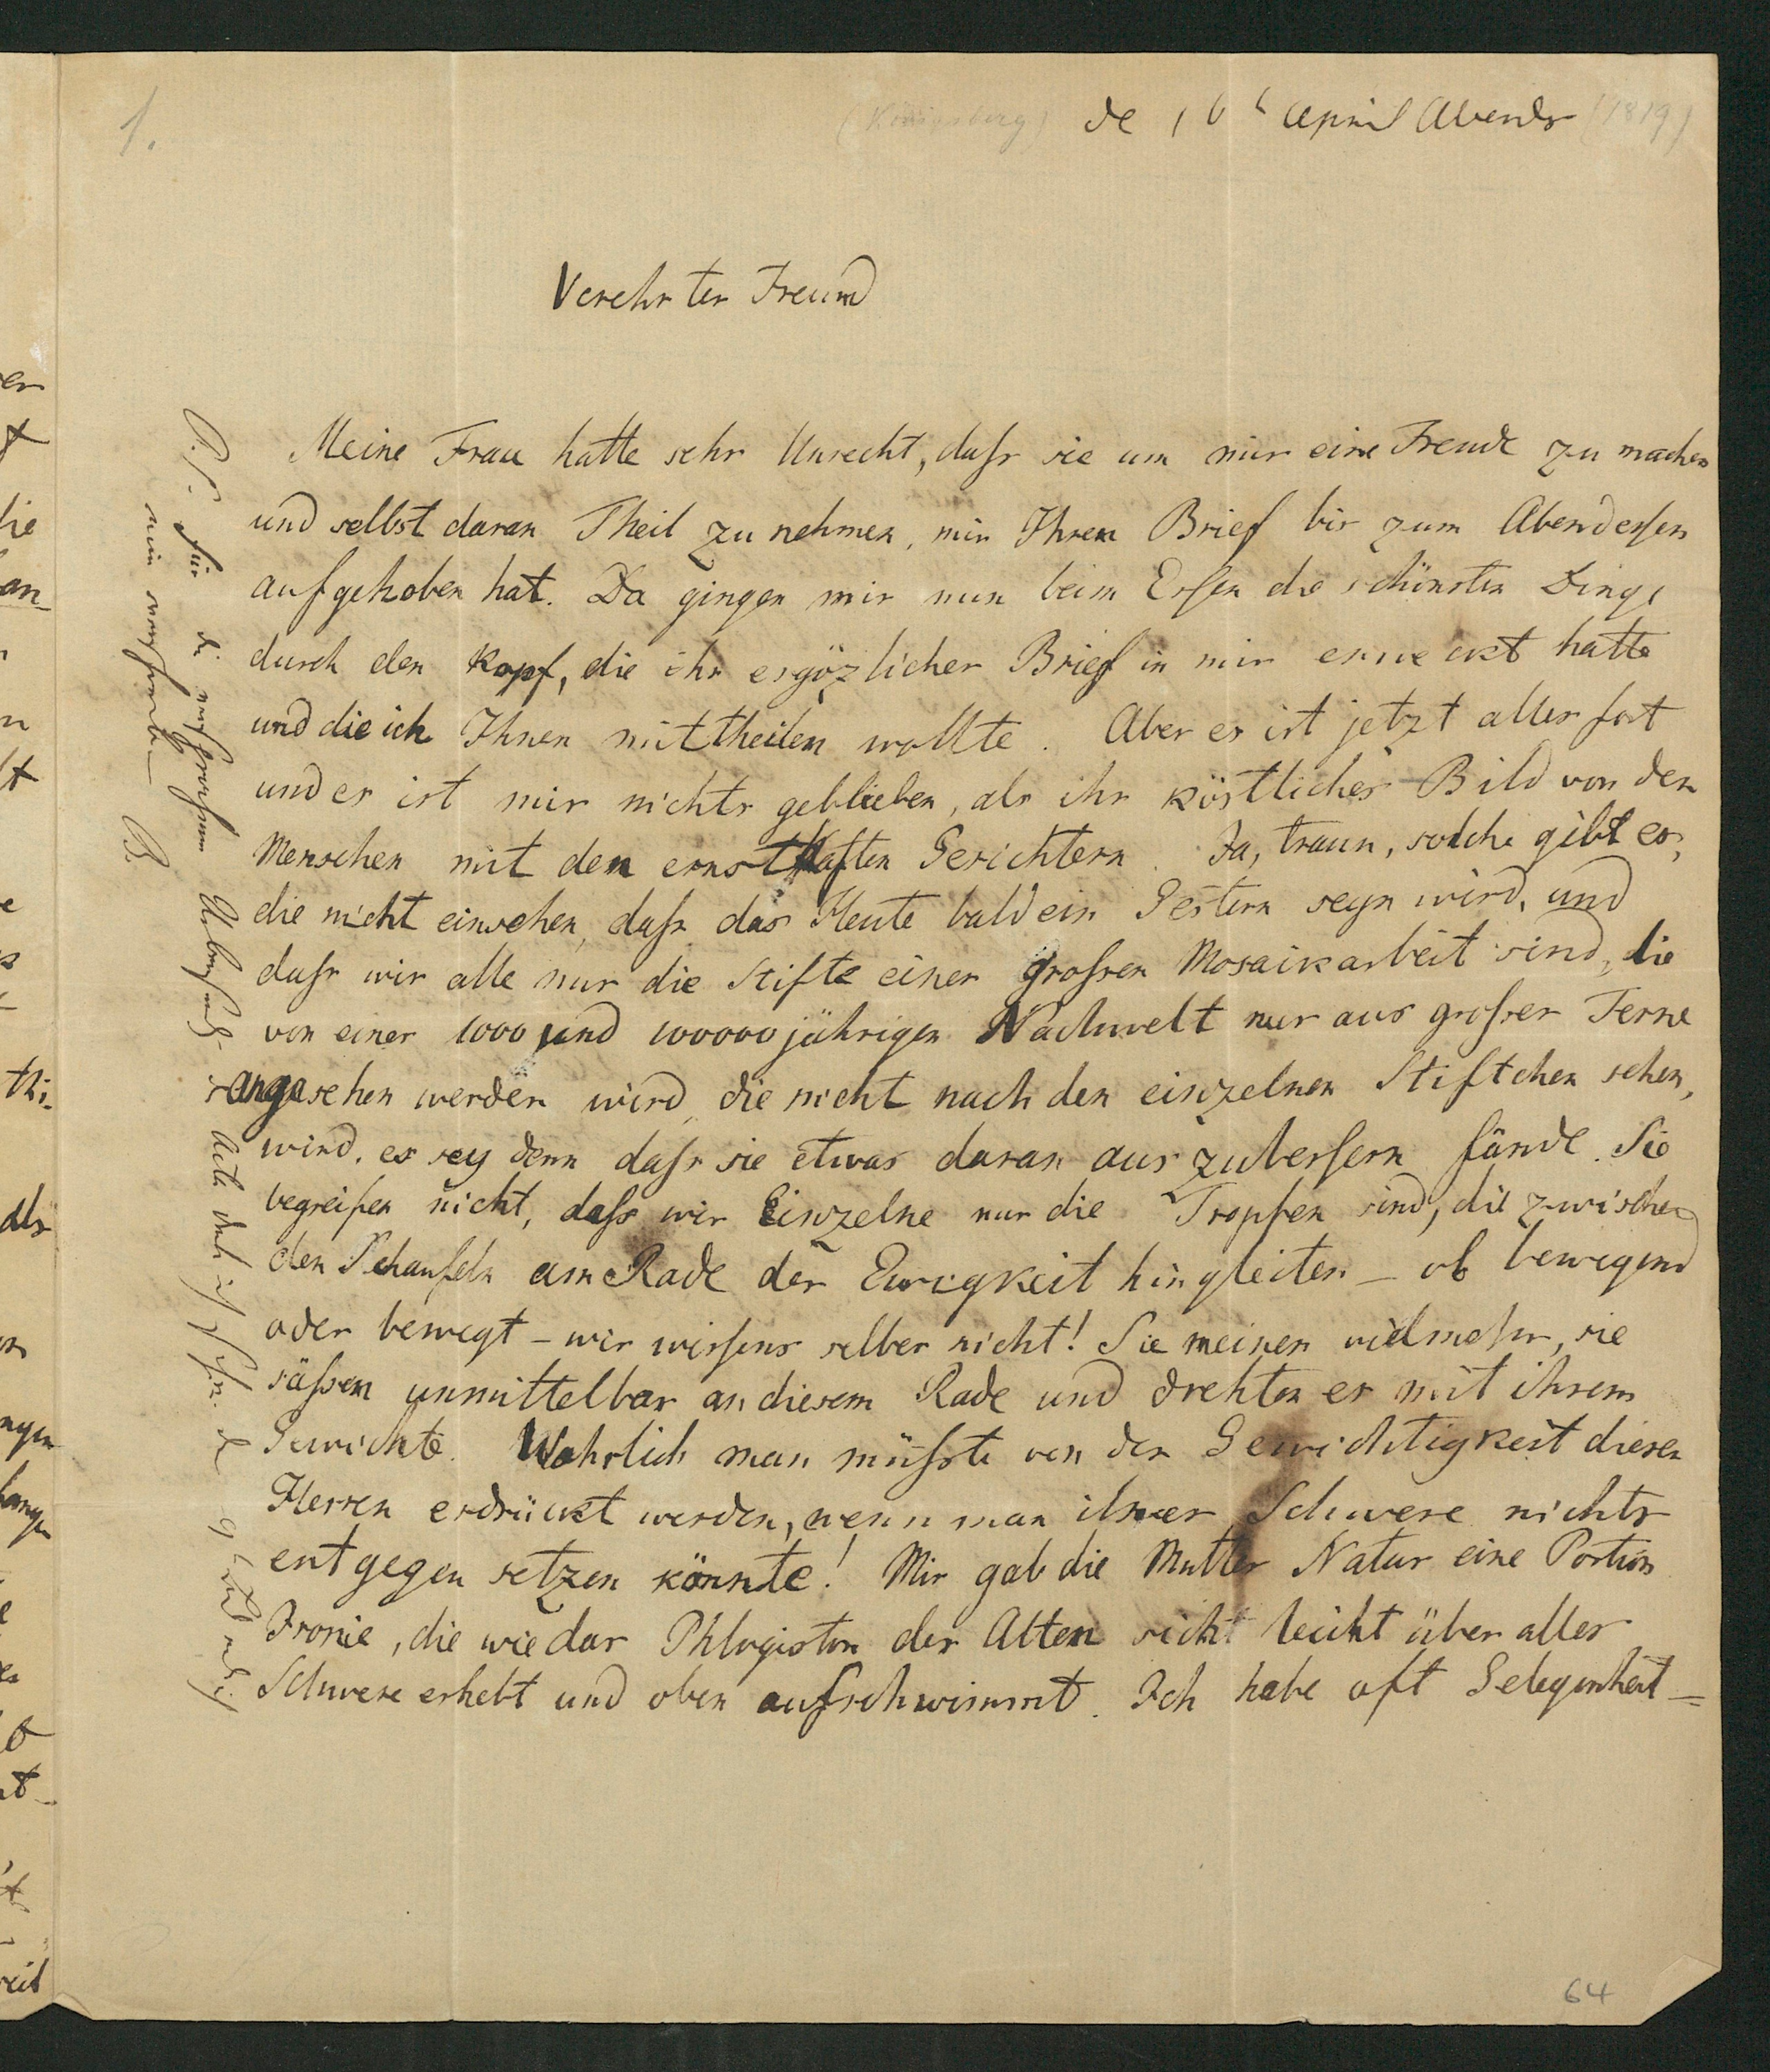 1.
(Königsberg) de 16 t April Abends (1819)
Verehrter Freund
Meine Frau hatte sehr Unrecht, daſs sie um mir eine Freude zu machen
und selbst daran Theil zu nehmen, mir Ihren Brief bis zum Abendeſsen
aufgehoben hat. Da gingen mir nun beim Eſsen die schönsten Dinge
durch den Kopf, die ihr ergözlicher Brief in mir erweckt hatte
und die ich Ihnen mittheilen wollte. Aber es ist jetzt alles fort
und es ist mir nichts geblieben, als ihr köstliches Bild von den
Menschen mit den ernsthaften Gesichtern. Ja, traun, solche gibt es,
die nicht einsehen, daſs das Heute bald ein Gestern seyn wird, und
daſs wir alle nur die Stifte einer groſsen Mosaikarbeit sind, die
von einer 1000 und 100000 jährigen Nachwelt nur aus groſser Ferne
angesehen werden wird, die nicht nach den einzelnen Stiftchen sehen,
wird, es sey denn daſs sie etwas daran auszubeſsern fände. Sie
begreifen nicht, daſs wir Einzelne nur die Tropfen sind, die zwischen
den Schaufeln am Rade der Ewigkeit hingleiten – ob bewegend
oder bewegt – wir wiſsens selber nicht! Sie meinen vielmehr, sie
säſsen unmittelbar an diesem Rade und drehten es mit ihrem
Gewichte. Wahrlich man müſste von der Gewichtigkeit dieser
Herren erdrückt werden, wenn man ihrer Schwere nichts
entgegen setzen könnte! Mir gab die Mutter Natur eine Portion
Ironie, die wie das Phlogiston der Alten sich leicht über alles
Schwere erhebt und oben aufschwimmt. Ich habe oft Gelegenheit =
P.S. für die
B.
64